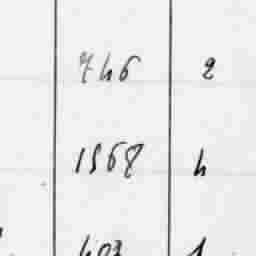 746 2
1568 4
403 1